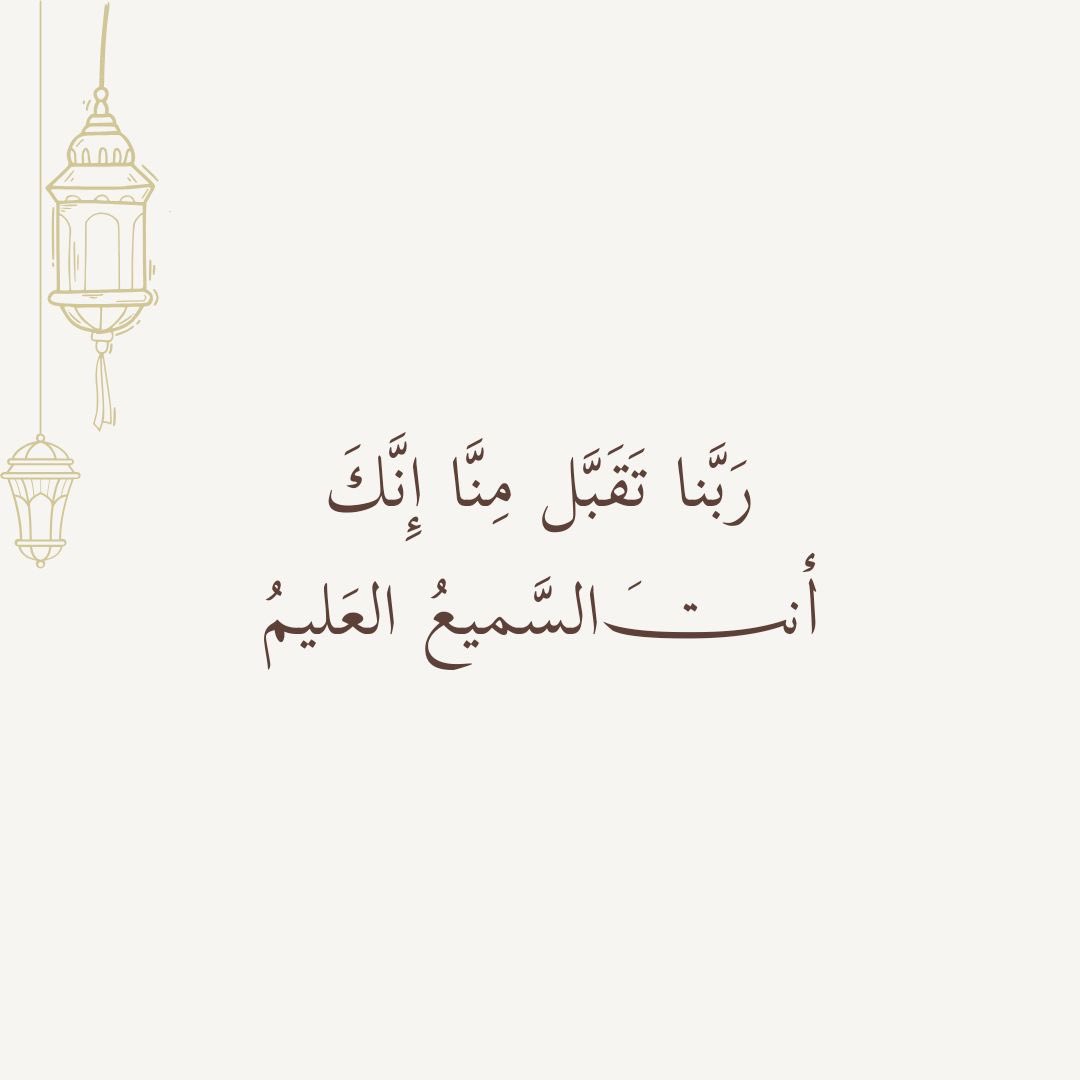 رَبَّنا تَقَبَّل مِنَّا إِنَّكَ
أنتَ السَّميعُ العَليمُ